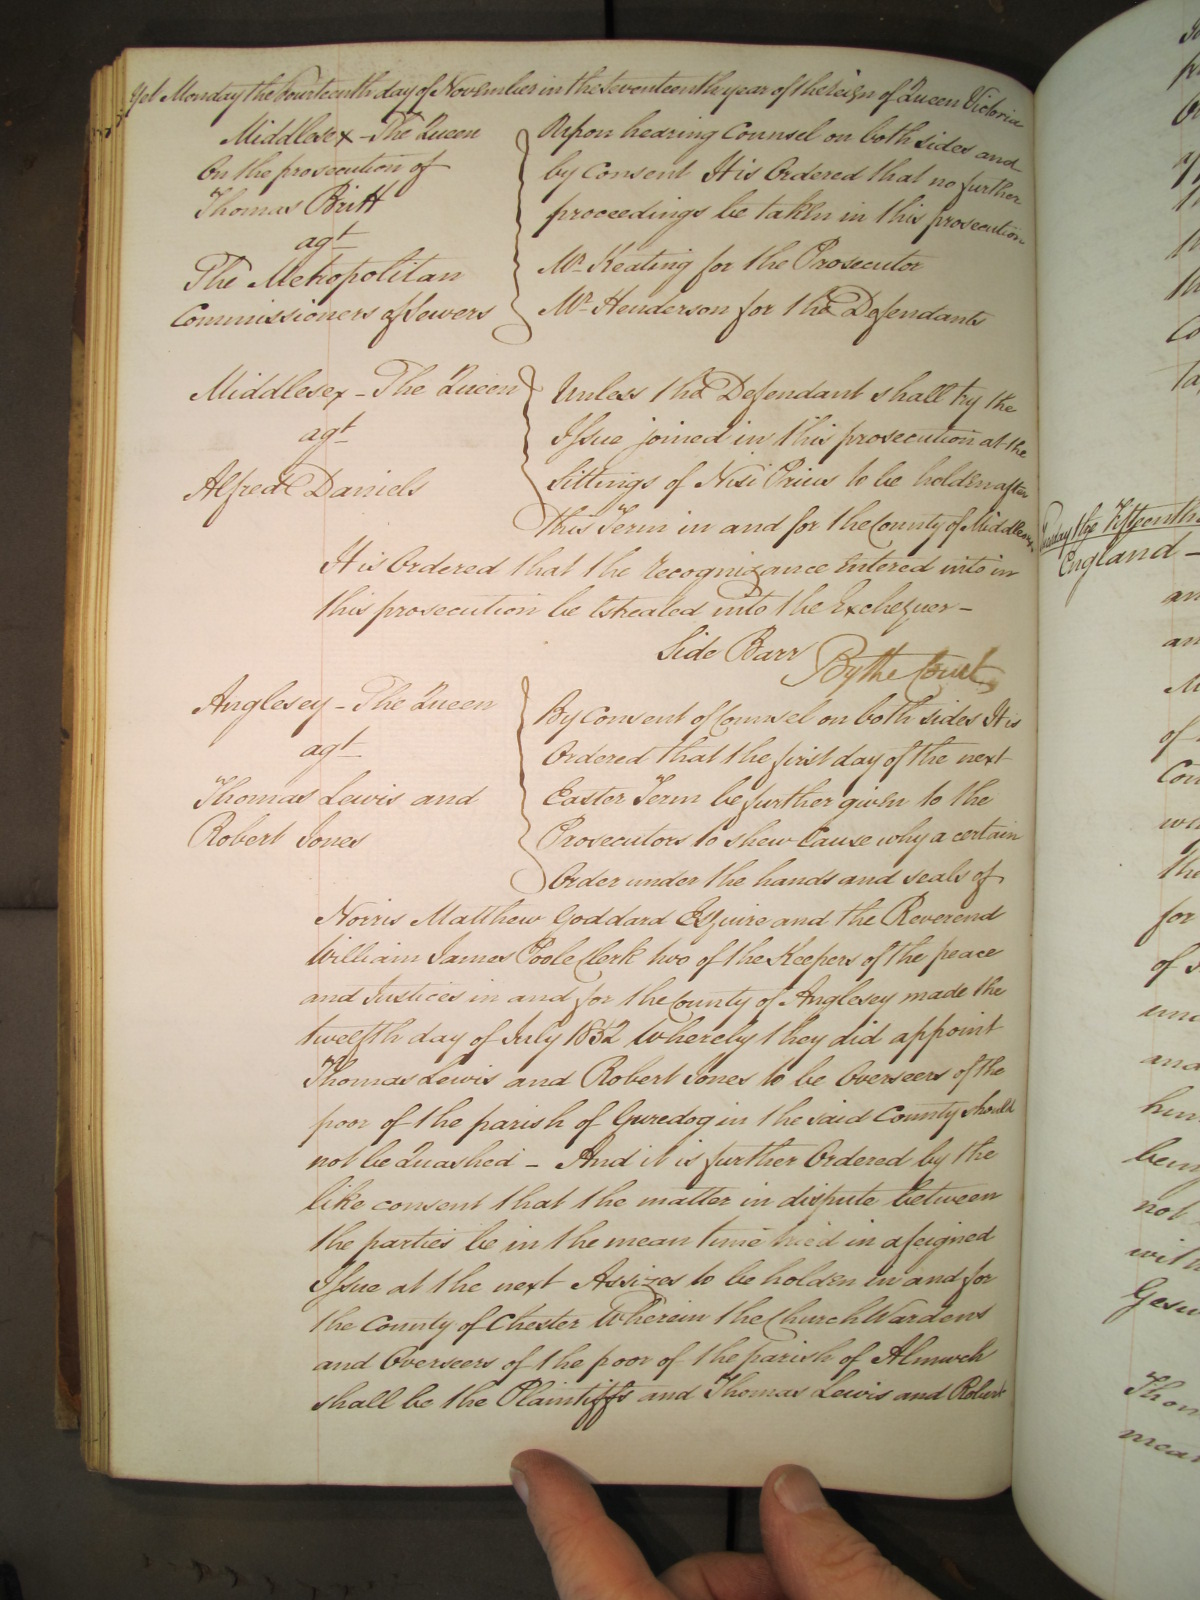 Yet Monday the Fourteenth day of November in the Seventeenth year of the reign of Queen Victoria
Middlesex - The Queen
On the prosecution of
Thomas Britt
agt
The Metropolitan
Commissioners of Sewers
Upon hearing Counsel on both sides and
by Consent It is Ordered that no further
proceedings be taken in this prosecution
Mr. Keating for the Prosecutor
Mr. Henderson for the Defendants
Middlesex - The Queen
agt
Alfred Daniels
Unless the Defendant shall try the
Issue joined in this prosecution at the
Sittings of Nisi Prius to be holden after
this Term in and for the County of Middlesex
It is Ordered that the recognizance Entered into in
this prosecution be Estreated into the Exchequer -
Side Barr By the Court
Anglesey - The Queen
agt
Thomas Lewis and
Robert Jones
By Consent of Counsel on both sides It is
Ordered that the first day of the next
Easter Term be further given to the
Prosecutors to shew Cause why a certain
Order under the hands and seals of
Norris Matthew Goddard Esquire and the Reverend
William James Poole Clerk two of the Keepers of the peace
and Justices in and for the County of Anglesey made the
twelfth day of July 1852 Whereby they did appoint
Thomas Lewis and Robert Jones to be Overseers of the
poor of the parish of Gwredog in the said County should
not be Quashed - And it is further Ordered by the
like consent that the matter in dispute between
the parties be in the mean time tried in a feigned
Issue at the next Assizes to be holden in and for
the County of Chester Wherein the Church Wardens
and Overseers of the poor of the parish of Almwch
shall be the Plaintiffs and Thomas Lewis and Robert
Tuesday the Fifteenth
England -
an
an
of
the
for
of
and
being
not
Thom
mean